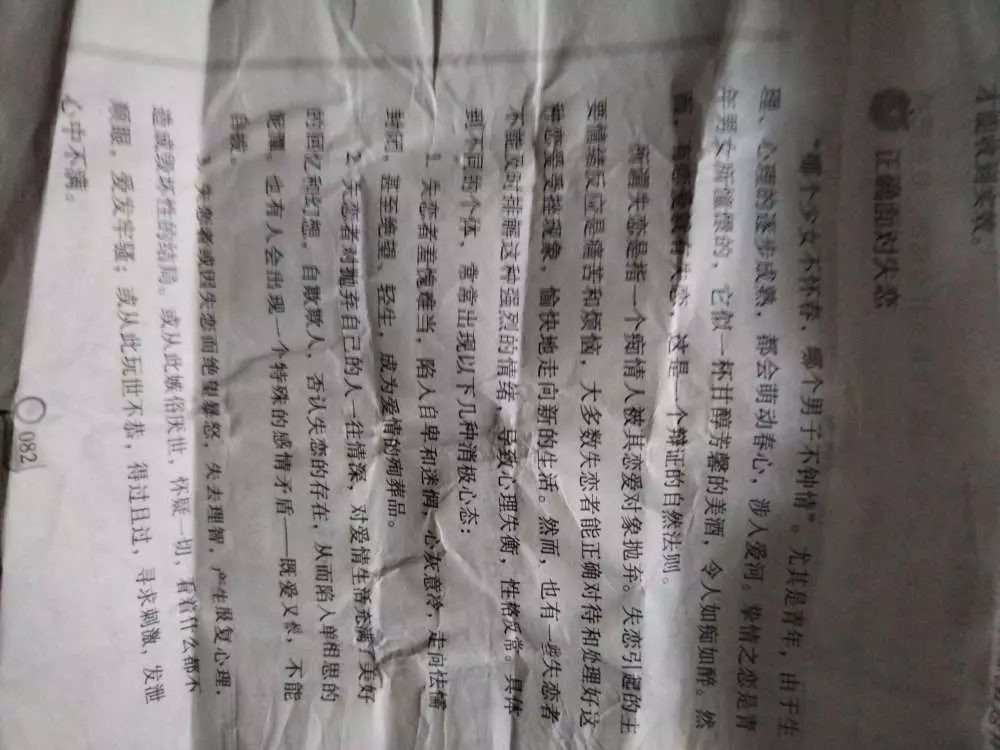 才能收到实效。
正确面对失恋
“哪个少女不怀春，哪个男子不钟情”。尤其是青年，由于生
理、心理的逐步成熟，都会萌动春心，涉入爱河。挚情之恋是青
年男女所憧憬的，它似一杯甘醇芳馨的美酒，令人如痴如醉。然
而，有恋爱就有失恋，这是一个辩证的自然法则。
所谓失恋是指一个痴情人被其恋爱对象抛弃。失恋引起的主
要情绪反应是痛苦和烦恼，大多数失恋者能正确对待和处理好这
种恋爱受挫现象，愉快地走向新的生活。然而，也有一些失恋者
不能及时排解这种强烈的情绪，导致心理失衡，性格反常。具体
到不同的个体，常常出现以下几种消极心态：
1. 失恋者羞愧难当，陷入自卑和迷惘，心灰意冷，走向怯懦
封闭，甚至绝望、轻生，成为爱情的殉葬品。
2. 失恋者对抛弃自己的人一往情深，对爱情生活充满了美好
的回忆和幻想。自欺欺人，否认失恋的存在，从而陷入单相思的
泥潭。也有人会出现一个特殊的感情矛盾——既爱又恨，不能
自拔。
3. 失恋者或因失恋而绝望暴怒，失去理智，产生报复心理，
造成毁坏性的结局。或从此嫉俗厌世，怀疑一切，看着什么都不
顺眼，爱发牢骚；或从此玩世不恭，得过且过，寻求刺激，发泄
心中不满。
082